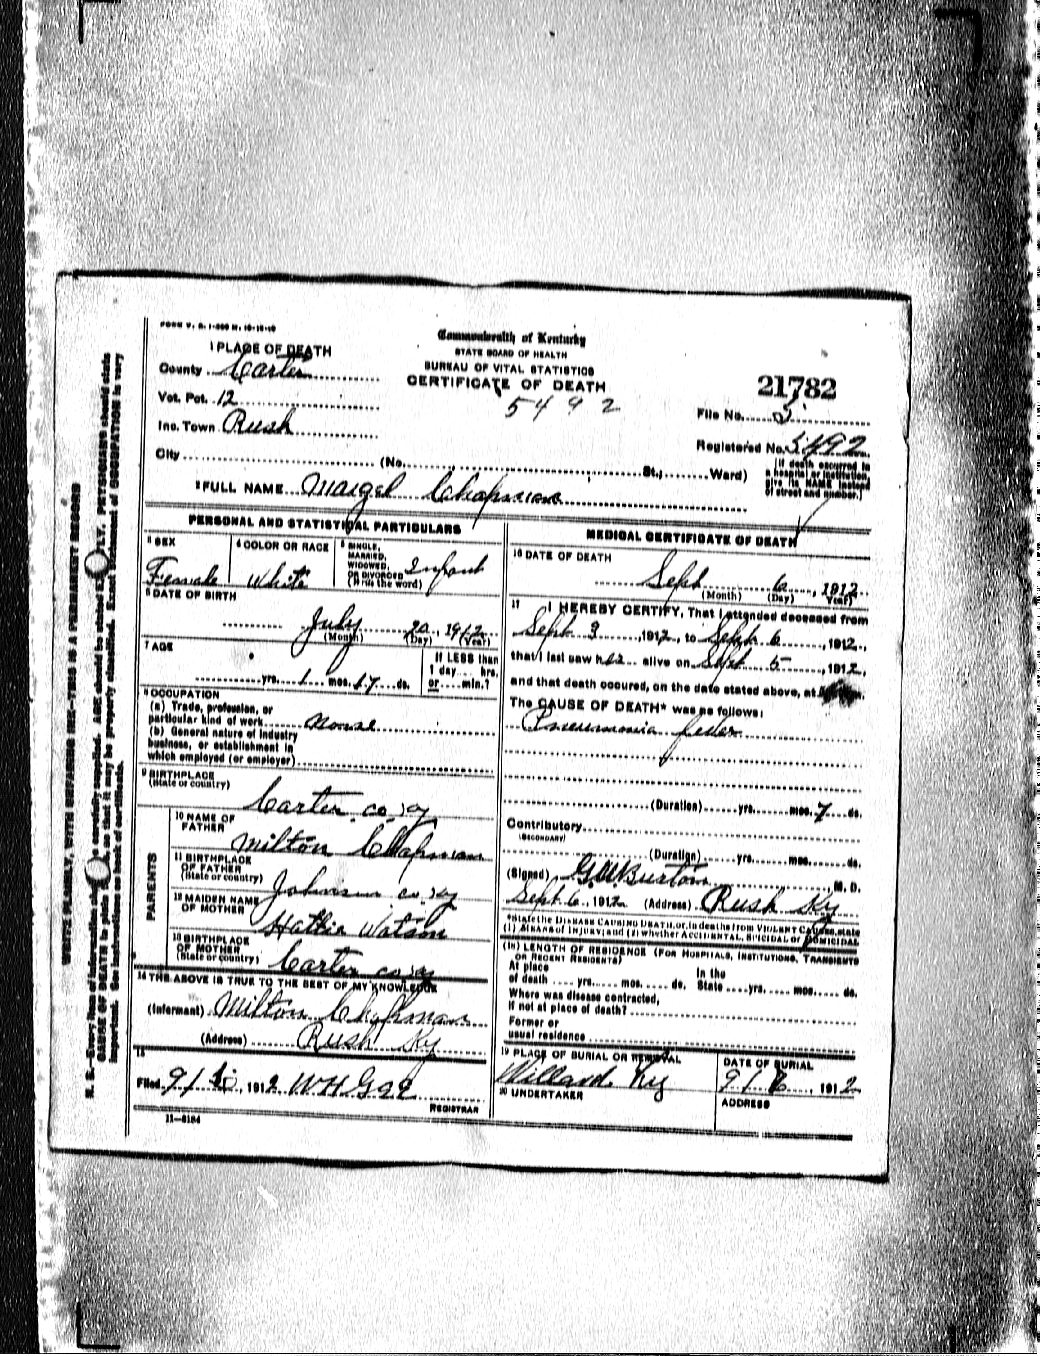 FORM V. S. 1-500 M. 10-15-10
1 PLACE OF DEATH
County Carter
Vot. Pct. 12
Inc. Town Rush
City (No. St.; Ward)
Commonwealth of Kentucky
STATE BOARD OF HEALTH
BUREAU OF VITAL STATISTICS
CERTIFICATE OF DEATH
5492
21782
File No. 5
Registered No. 5492
[If death occurred in
a hospital or institution,
give its NAME instead
of street and number.]
2 FULL NAME Maigel Chapman
PERSONAL AND STATISTICAL PARTICULARS
3 SEX
Female
4 COLOR OR RACE
White
5 SINGLE,
MARRIED,
WIDOWED,
OR DIVORCED
(Write the word)
Infant
6 DATE OF BIRTH
July 20, 1912
(Month) (Day) (Year)
7 AGE
yrs. 1 mos. 17 ds.
If LESS than
1 day... hrs.
or... min.?
8 OCCUPATION
(a) Trade, profession, or
particular kind of work None
(b) General nature of industry
business, or establishment in
which employed (or employer)
9 BIRTHPLACE
(State or country)
Carter co Ky
PARENTS
10 NAME OF
FATHER
Milton Chapman
11 BIRTHPLACE
OF FATHER
(State or country)
Johnson co Ky
12 MAIDEN NAME
OF MOTHER
Hattie Watson
13 BIRTHPLACE
OF MOTHER
(State or country)
Carter co Ky
14 THE ABOVE IS TRUE TO THE BEST OF MY KNOWLEDGE
(Informant) Milton Chapman
(Address) Rush Ky
15
Filed 9/ , 1912 W H
REGISTRAR
11-6184
MEDICAL CERTIFICATE OF DEATH
16 DATE OF DEATH
Sept 6, 1912
(Month) (Day) (Year)
17 I HEREBY CERTIFY, That I attended deceased from
Sept 3 1912, to Sept 6, 1912,
that I last saw h alive on Sept 5, 1912,
and that death occured, on the date stated above, at
The CAUSE OF DEATH* was as follows:
Pneumonia fever
(Duration) yrs. mos. 7 ds.
Contributory
(SECONDARY)
(Duration) yrs. mos. ds.
(Signed) G.W. Burton, M. D.
Sept 6, 1912 (Address) Rush Ky
*State the DISEASE CAUSING DEATH, or, in deaths from VIOLENT CAUSES, state
(1) MEANS OF INJURY; and (2) whether ACCIDENTAL, SUICIDAL or HOMICIDAL.
18 LENGTH OF RESIDENCE (FOR HOSPITALS, INSTITUTIONS, TRANSIENTS
OR RECENT RESIDENTS)
At place
of death yrs. mos. ds.
In the
State yrs. mos. ds.
Where was disease contracted,
if not at place of death?
Former or
usual residence
19 PLACE OF BURIAL OR REMOVAL
Willard Ky
DATE OF BURIAL
9/ , 1912
20 UNDERTAKER
ADDRESS
WRITE PLAINLY, WITH UNFADING INK—THIS IS A PERMANENT RECORD
N. B.—Every item of information should be carefully supplied. AGE should be stated EXACTLY. PHYSICIANS should state
CAUSE OF DEATH in plain terms, so that it may be properly classified. Exact statement of OCCUPATION is very
important. See instructions on back of certificate.